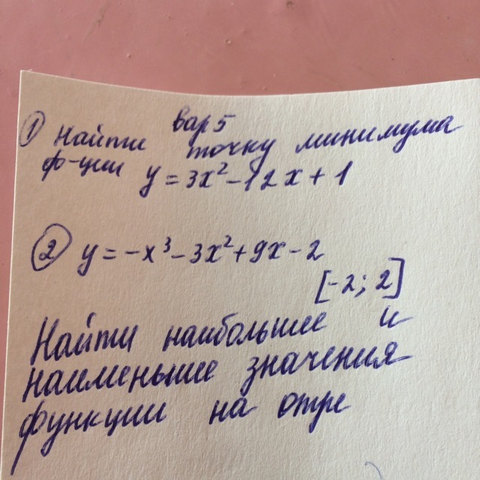 вар 5
① Найти точку минимума
ф-ции y = 3x² - 12x + 1
② y = -x³ - 3x² + 9x - 2
[-2; 2]
Найти наибольшее и
наименьшие значения
функции на отре